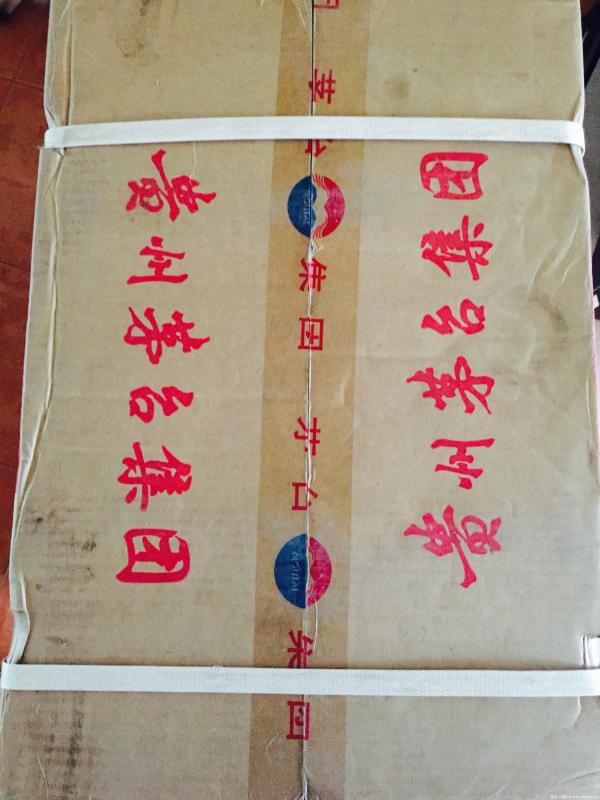 貴州茅台集团
团 茅台 MOUTAI 集团 茅台 MOUTAI 集团
貴州茅台集团